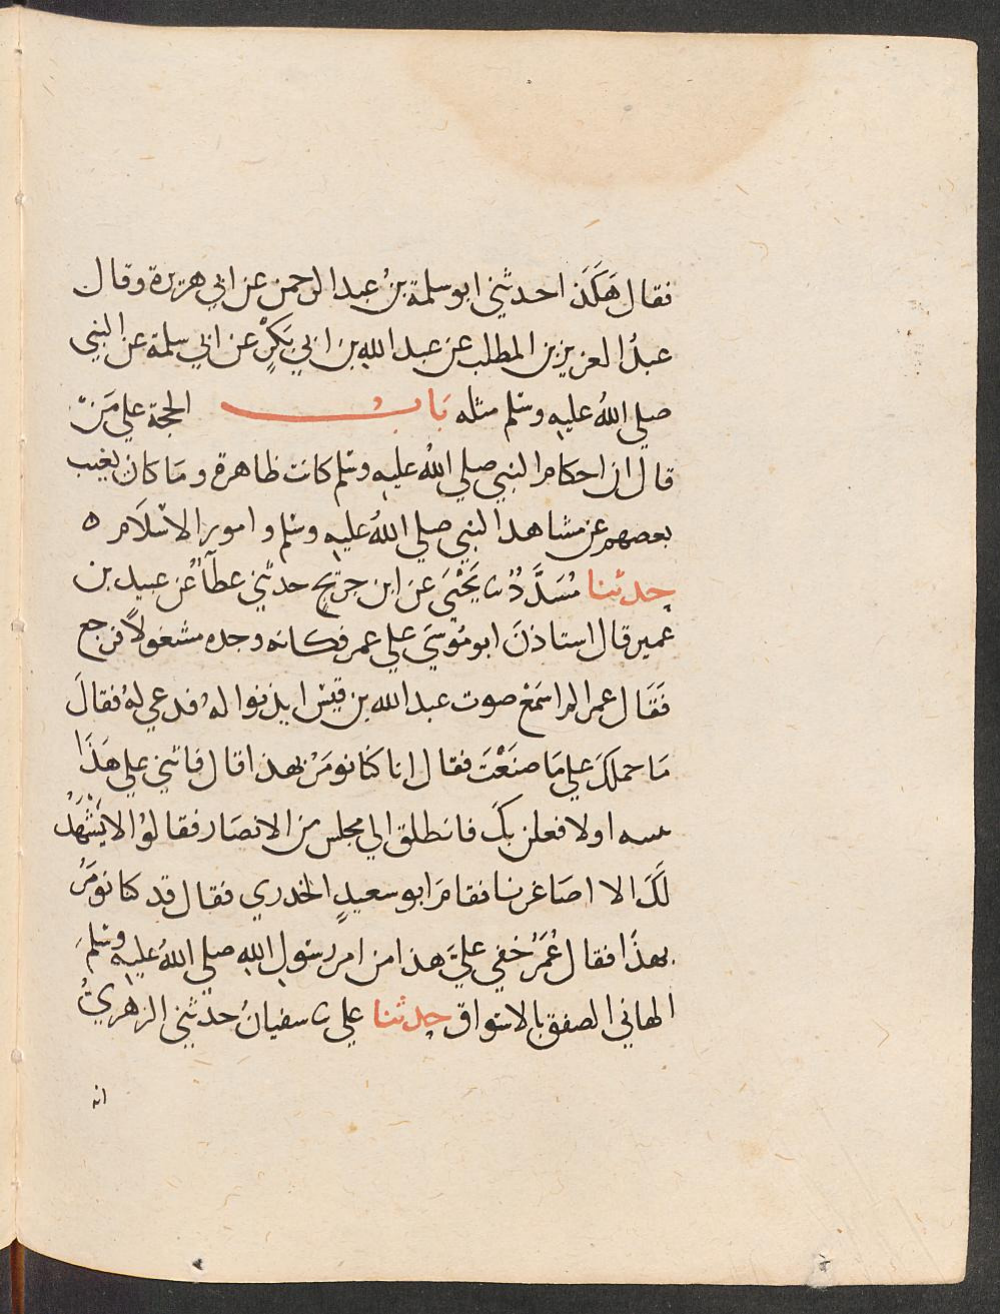 فقال هَكَذَا حدثني ابو سلمة بنُ عبد الرحمن عن ابي هريرة وقال
عبدُ العزيز بن المطلب عن عبد الله بن ابي بَكرٍ عن ابي سلمة عن النبي
صلي اللهُ عليه وسلم مثله بَاب الحجة علي مَنْ
قال ان احكام النبي صلي اللهُ عليه وسلم كانت ظاهرة ومَا كان يغيب
بعضهم عن مشاهد النبي صلي اللهُ عليه وسلم وامور الاسْلَام ه
حدثنا مُسَدَّدٌ ثنا يَحْيَي عَن ابن جريج حدثني عطآءٌ عن عبيد بن
عمير قال استاذنَ ابو مُوسَي علي عمر فكانه وجده مشغولًا فرجع
فَقَال عمر الم اسْمَعْ صوت عبد الله بن قيْس ايذنوا لهُ فدعي لهُ فقالَ
مَا حملكَ علي مَا صنَعْتَ فقال انا كنا نومَرُ بهذا قال فاتني علي هَذَا
ببينه اولا فعلن بكَ فانطلق الي مجلس من الانصَار فقالوْا لا يَشْهَدُ
لَكَ الا اصَاغرنا فقامَ ابو سعيدٍ الخدري فقال قد كنا نومَرُ
بهذَا فقال عُمَرُ خفي عليَّ هذا من امر رسُولِ الله صلي اللهُ عليه وسلمَ
الهاني الصفق بالاسْواق حدثنا علي ثنا سفيانُ حدثني الزهريُّ
انه